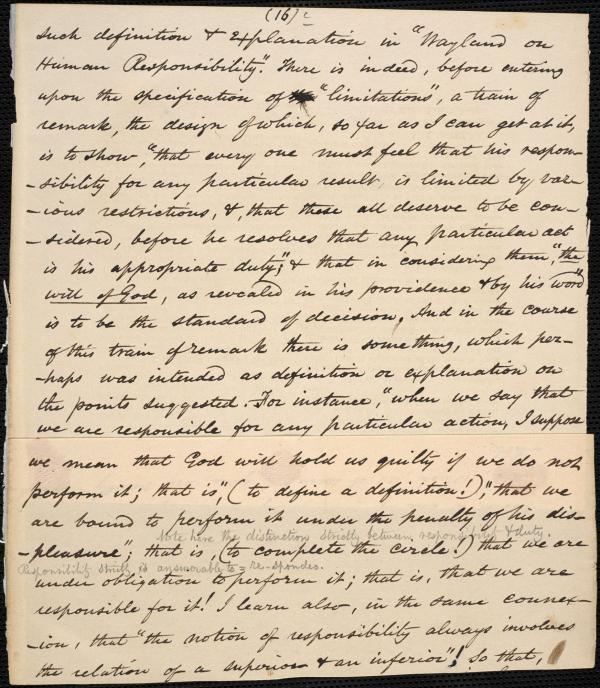 (16) c
such definition & explanation in "Wayland on
Human Responsibility". There is indeed, before entering
upon the specification of "limitations", a train of
remark, the design of which, so far as I can get at it,
is to show, "that every one must feel that his respon-
-sibility for any particular result, is limited by var-
-ious restrictions, & that these all deserve to be con-
-sidered, before he resolves that any particular act
is his appropriate duty;" & that in considering them, "the
will of God, as revealed in his providence & by his word"
is to be the standard of decision. And in the course
of this train of remark there is something, which per-
-haps was intended as definition or explanation on
the points suggested. For instance, "when we say that
we are responsible for any particular action, I suppose
we mean that God will hold us guilty if we do not
perform it; that is", (to define a definition!), "that we
are bound to perform it under the penalty of his dis-
Note here the distinction strictly between responsibility & duty.
-pleasure"; that is, (to complete the circle!) that we are
Responsibility strictly is answerable to = re-spondeo.
under obligation to perform it; that is, that we are
responsible for it! I learn also, in the same connex-
-ion, that "the notion of responsibility always involves
the relation of a superior & an inferior"! So that,